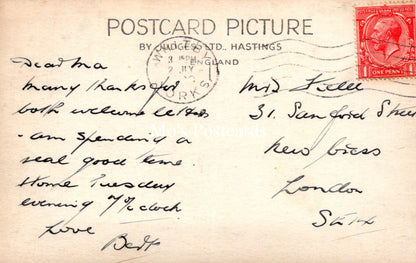 POSTCARD PICTURE
BY JUDGES LTD., HASTINGS
ENGLAND
WHITBY
YORKS
ONE PENNY
Dear Ma
many thanks for
both welcome letters
- am spending a
real good time.
Home Tuesday
evening 7 o'clock
Love
Bert
Mrs
31. Sandford Street
New Cross
London
S.E.14